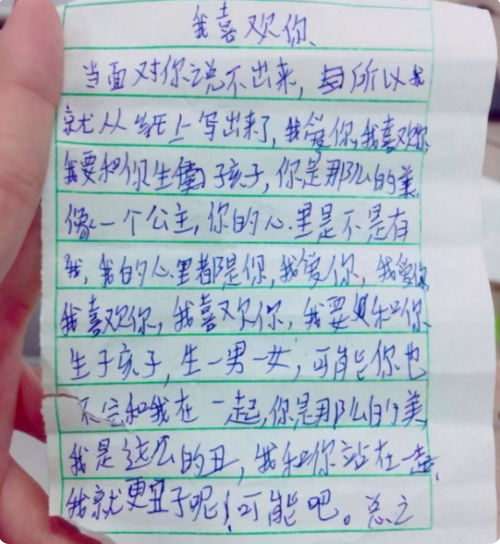 我喜欢你
当面对你说不出来，所以我
就从纸上写出来了，我爱你，我喜欢你
我要和你生子孩子，你是那么的美
像一个公主，你的心里是不是有
我，我的心里都是你，我爱你，我爱你
我喜欢你，我喜欢你，我要和你
生子孩子，生一男一女，可能你也
不会和我在一起，你是那么的美
我是这么的丑，我和你站在一起
我就更丑了呢！可能吧。总之